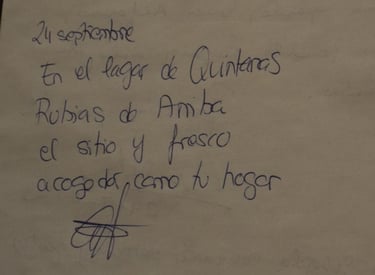 24 septiembre
En el lagar de Quintanas
Rubias de Arriba
el sitio y fresco
acogedor, como tu hogar